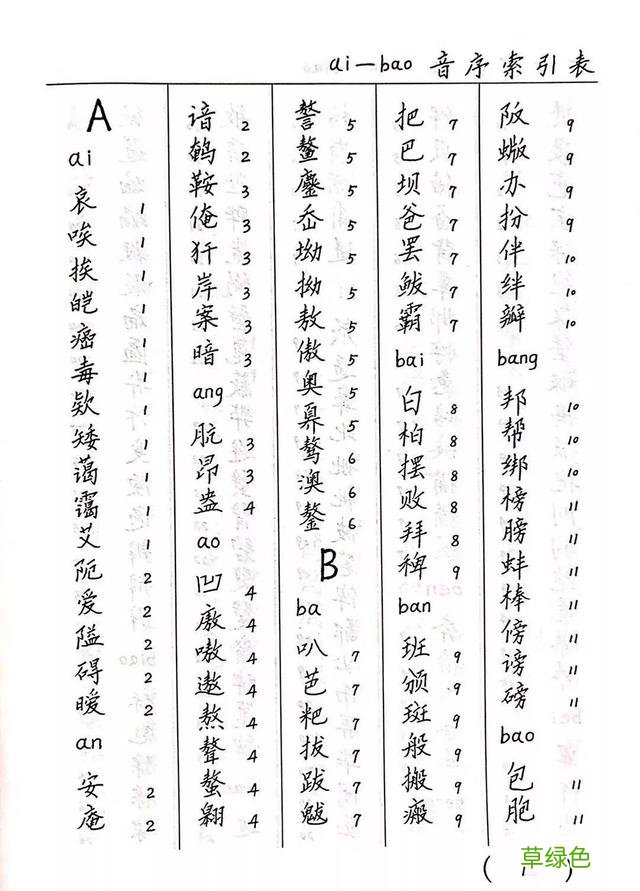 ai—bao 音序索引表
A
ai
哀 1
唉 1
挨 1
皑 1
癌 1
毐 1
欸 1
矮 1
蔼 1
霭 1
艾 1
阨 2
爱 2
隘 2
碍 2
暧 2
an
安 2
庵 2
谙 2
鹌 2
鞍 3
俺 3
犴 3
岸 3
案 3
暗 3
ang
肮 3
昂 3
盎 4
ao
凹 4
廒 4
嗷 4
遨 4
熬 4
聱 4
螯 4
翱 4
謷 5
鳌 5
鏖 5
岙 5
坳 5
拗 5
敖 5
傲 5
奥 5
奡 5
骜 6
澳 6
鏊 6
B
ba
叭 7
芭 7
粑 7
拔 7
跋 7
魃 7
把 7
巴 7
坝 7
爸 7
罢 7
鲅 7
霸 7
bai
白 8
柏 8
摆 8
败 8
拜 8
稗 9
ban
班 9
颁 9
斑 9
般 9
搬 9
瘢 9
阪 9
蝂 9
办 9
扮 9
伴 10
绊 10
瓣 10
bang
邦 10
帮 10
绑 10
榜 11
膀 11
蚌 11
棒 11
傍 11
谤 11
磅 11
bao
包 11
胞 11
( 1 )
草绿色